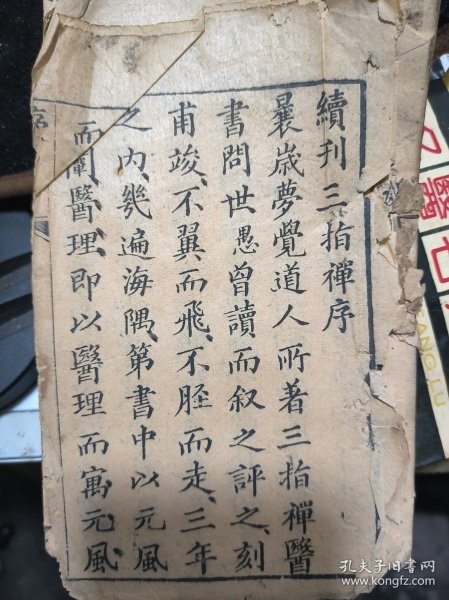 續刊三指禪序
曩歲夢覺道人所著三指禪醫
書問世愚曾讀而叙之評之刻
甫竣不翼而飛不脛而走三年
之內幾遍海隅第書中以元風
而闡醫理即以醫理而寓元風
序
孔夫子旧书网
https://book.kongfz.com/